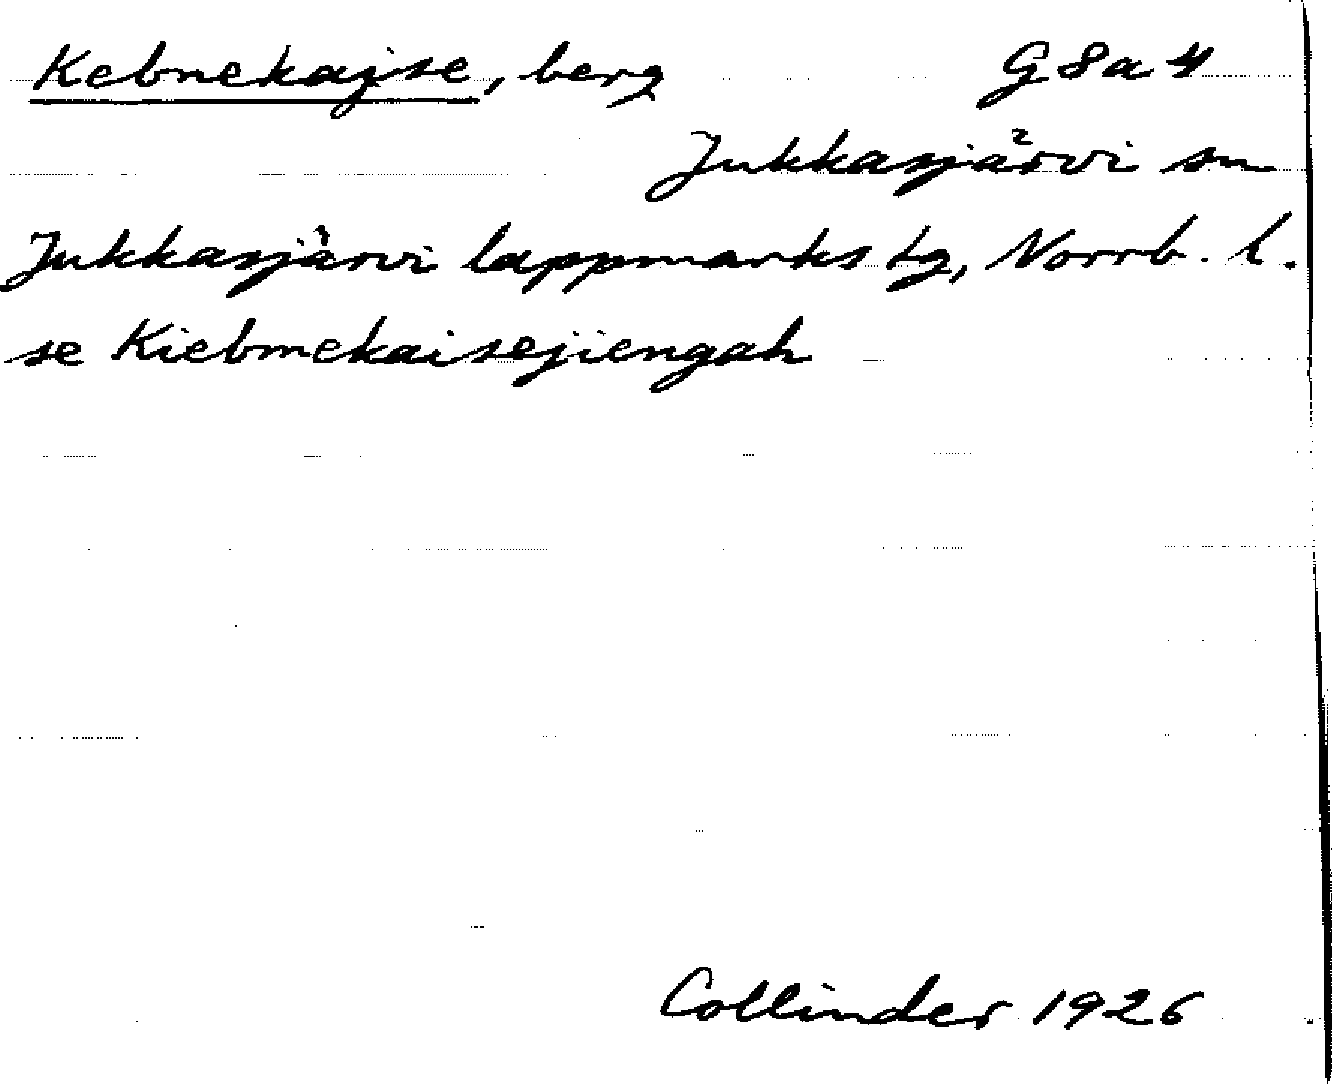 Kebnekajse, berg G8a4
Jukkasjärvi sn
Jukkasjärvi lappmarks tg, Norrb. l.
se Kiebmekaisejiengah
Collinder 1926